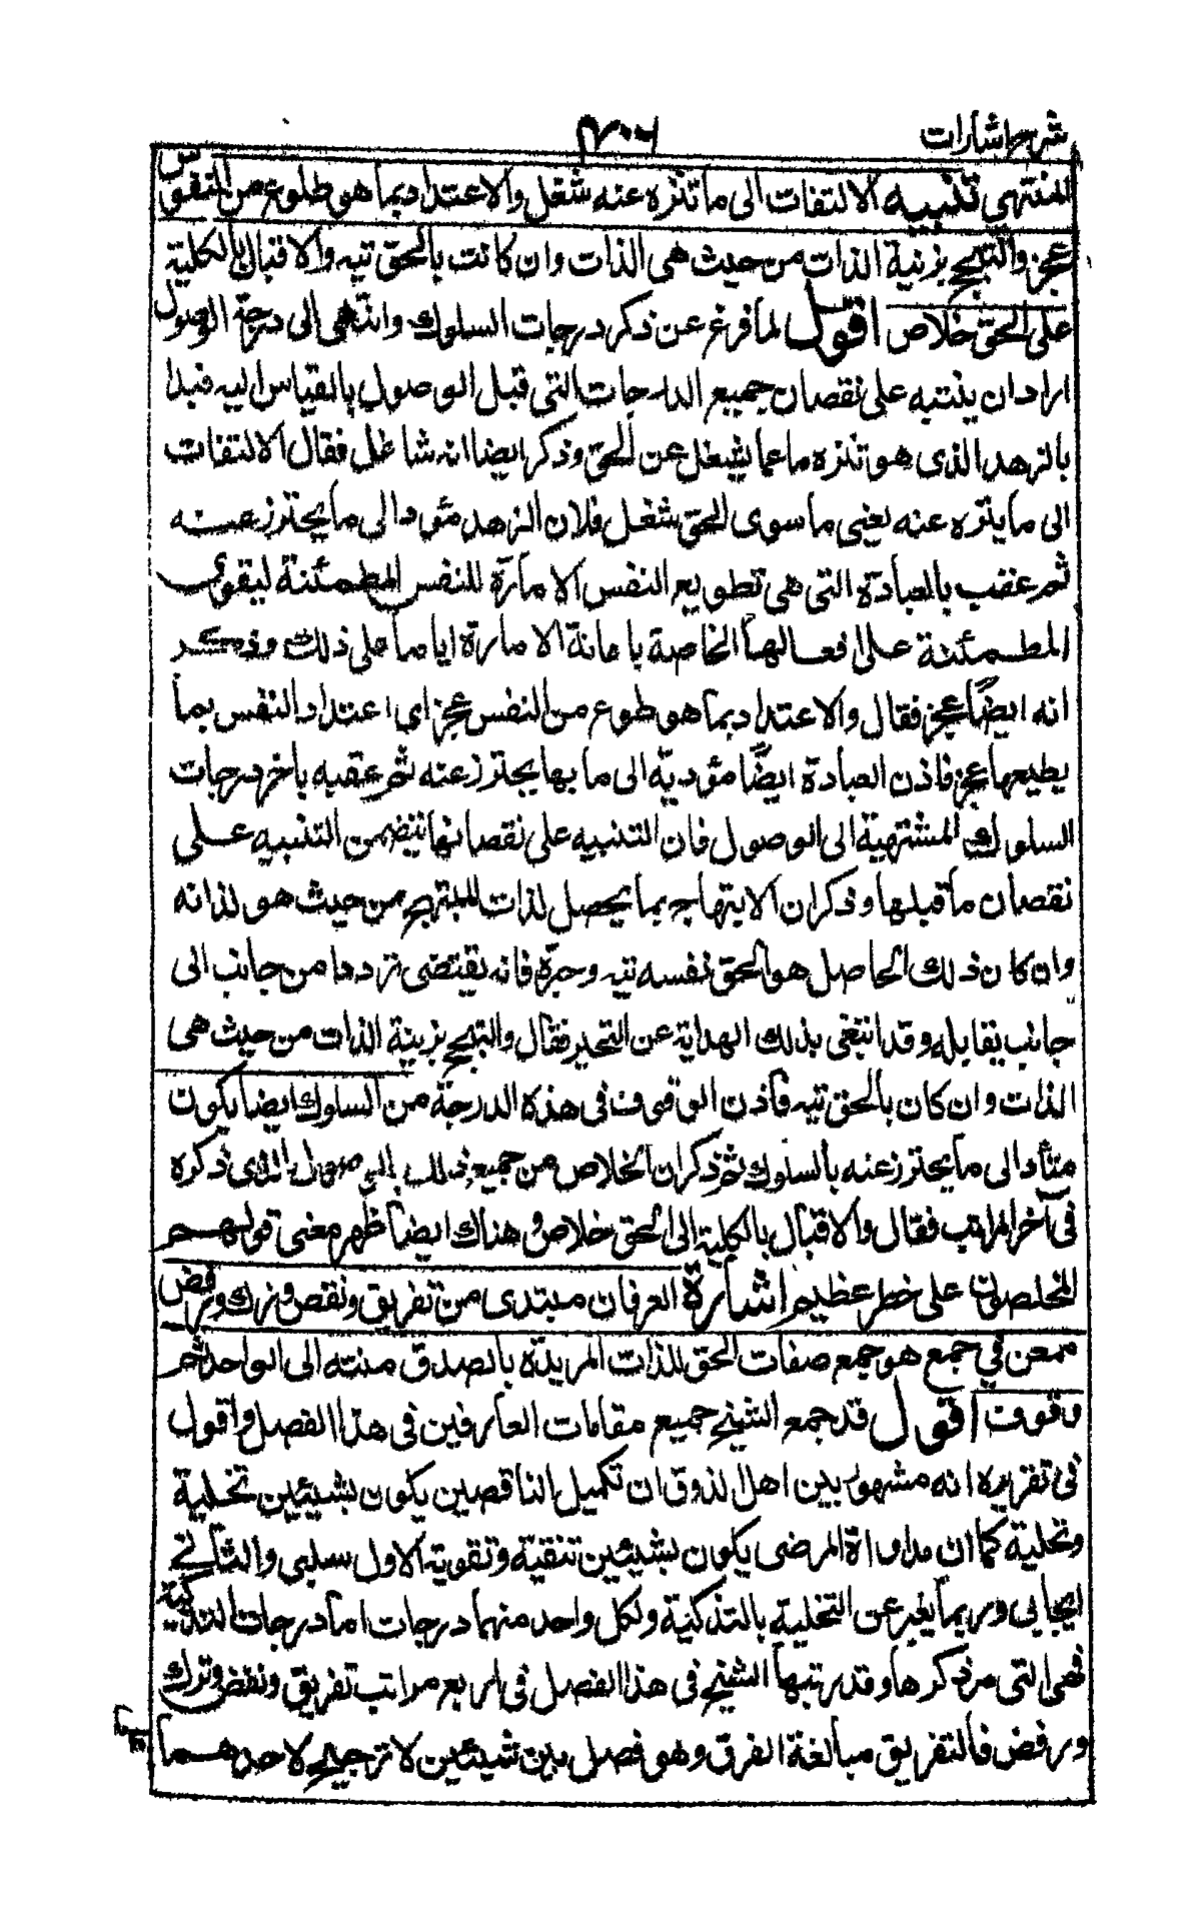 شرح اشارات
المنتهي تنبيه الالتفات الى ما تنزه عنه شغل والاعتداد بما هو طلوع من النفس
عجز والتبجح بزينة الذات من حيث هى الذات وان كانت بالحق تيه والاقبال بالكلية
على الحق خلاص اقول لما فرغ عن ذكر درجات السلوك وانتهى الى درجة الوصول
اراد ان ينبه على نقصان جميع الدرجات التى قبل الوصول بالقياس اليه فبدا
بالزهد الذى هو تنزه ما عما يشغل عن الحق وذكر ايضا انه شاغل فقال الالتفات
الى ما يتزه عنه يعنى ما سوى الحق شغل فلان الزهد مؤد الى ما يحترز عنه
ثم عقب بالعبادة التى هى تطويع النفس الامارة للنفس المطمئنة ليقوى
المطمئنة على افعالها الخاصة باعانة الامارة اياها على ذلك وذكر
انه ايضا عجز فقال والاعتداد بما هو طوع من النفس عجز اى اعتداد النفس بما
يطيعها عجز فاذن العبادة ايضًا مؤدية الى ما بها يحترز عنه ثم عقبه باخر درجات
السلوك المشتهية الى الوصول فان التنبيه على نقصانها يتضمن التنبيه على
نقصان ما قبلها وذكر ان الابتهاج بما يحصل لذات المبتهج من حيث هو لذاته
وان كان ذلك الحاصل هو الحق نفسه تيه وحيرة فانه يقتضى تردد ما من جانب الى
جانب يقابله وقد انتغى بذلك الهداية عن التحير فقال والتبجح بزينة الذات من حيث هى
الذات وان كان بالحق تيه فاذن الوقوف فى هذه الدرجة من السلوك ايضا يكون
متأد الى ما يحترز عنه بالسلوك ثم ذكر ان الخلاص من جميع ذلك بالوصول الذى ذكره
فى آخر المراتب فقال والاقبال بالكلية الى الحق خلاص و هناك ايضا ظهر معنى قولهم
المخلصون على خطر عظيم اشارة العرفان مبتدى من تفريق ونقص وترك ورفض
ممعن في جمع هو جمع صفات الحق للذات المريدة بالصدق منته الى الواحد ثم
وقوف اقول قد جمع الشيخ جميع مقامات العارفين فى هذا الفصل واقول
فى تقريره انه مشهور بين اهل لذوق ان تكميل الناقصين يكون بشيئين تخلية
وتحلية كما ان مداواة المرضى يكون بشيئين تنقية وتقوية الاول سلبى والثانى
ايجابى وربما يعبر عن التخلية بالتذكية ولكل واحد منهما درجات اما درجات التذكية
فهى التى مر ذكرها وقد رتبها الشيخ فى هذا الفصل فى اربع مراتب تفريق ونفض وترك
ورفض فالتفريق مبالغة الفرق وهو فصل بين شيئين لا ترجيح لاحدهما